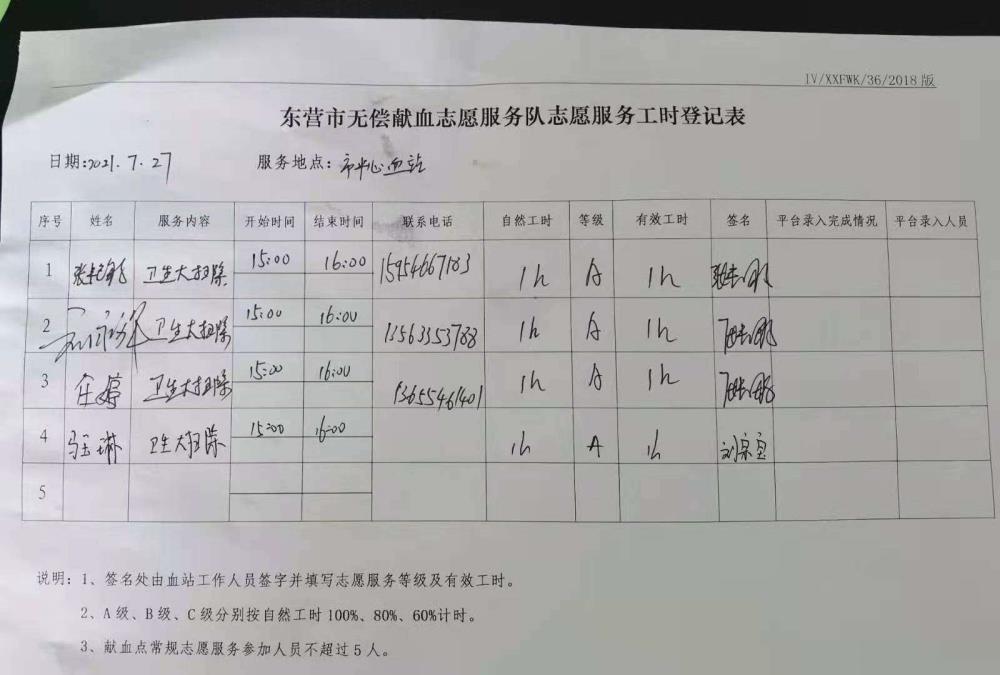 IV/XXFWK/36/2018版
东营市无偿献血志愿服务队志愿服务工时登记表
日期:2021.7.27 服务地点:市中心血站
序号 姓名 服务内容 开始时间 结束时间 联系电话 自然工时 等级 有效工时 签名 平台录入完成情况 平台录入人员
1 卫生大扫除 15:00 16:00 15954667183 1h A 1h
2 卫生大扫除 15:00 16:00 13563353788 1h A 1h
3 任婷 卫生大扫除 15:00 16:00 13655461401 1h A 1h
4 马玉琳 卫生大扫除 15:00 16:00 1h A 1h
5
说明:1、签名处由血站工作人员签字并填写志愿服务等级及有效工时。
2、A级、B级、C级分别按自然工时100%、80%、60%计时。
3、献血点常规志愿服务参加人员不超过5人。